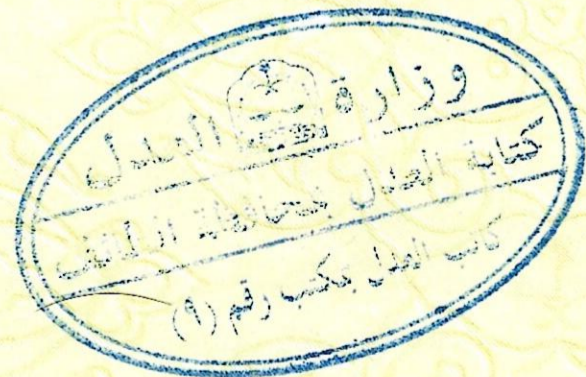 وزارة العدل
كتابة العدل بمحافظة الطائف
كاتب العدل بمكتب رقم (٩)